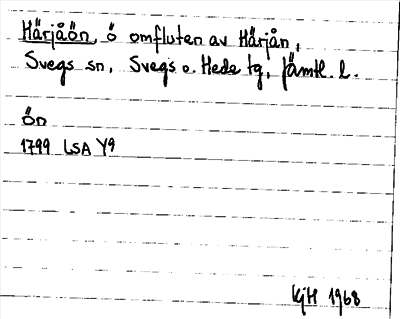 Härjåön, ö omfluten av Härjån,
Svegs sn, Svegs o. Hede tg, Jämtl. l.
Ön
1799 LSA Y9
KjH 1968